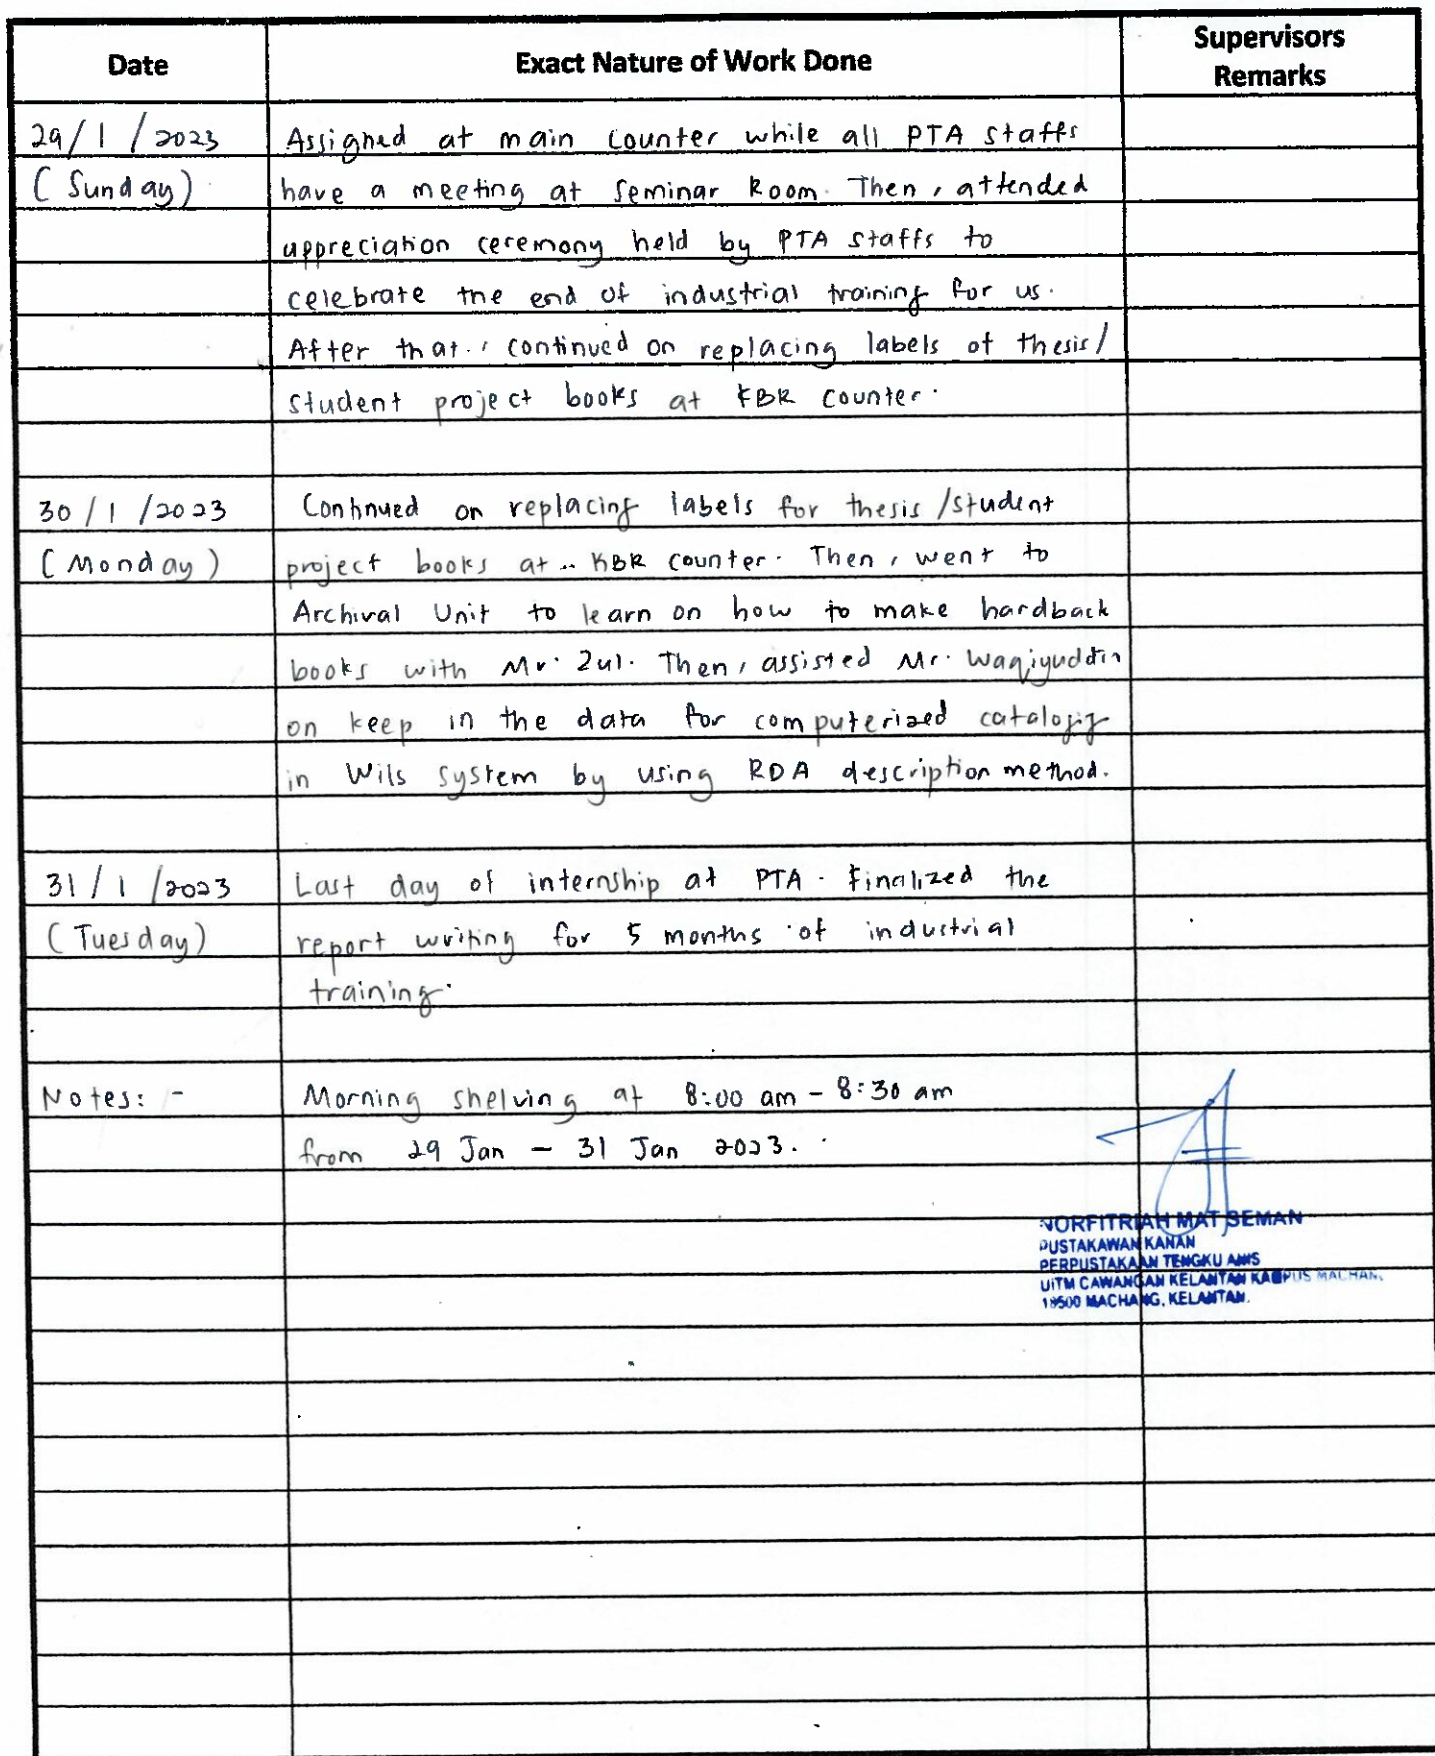 Date Exact Nature of Work Done Supervisors
Remarks
29/1/2023 Assigned at main counter while all PTA staffs
(Sunday) have a meeting at Seminar Room. Then, attended
appreciation ceremony held by PTA staffs to
celebrate the end of industrial training for us.
After that, continued on replacing labels of thesis/
student project books at KBR counter.
30/1/2023 Continued on replacing labels for thesis/student
(Monday) project books at KBR counter. Then, went to
Archival Unit to learn on how to make hardback
books with Mr. Zul. Then, assisted Mr. Waqiyuddin
on keep in the data for computerized
in Wils system by using RDA description method.
31/1/2023 Last day of internship at PTA. Finalized the
(Tuesday) report writing for 5 months of industrial
training.
Notes: - Morning shelving at 8:00 am - 8:30 am
from 29 Jan - 31 Jan 2023.
NORFITRIAH MAT SEMAN
PUSTAKAWAN KANAN
PERPUSTAKAAN TENGKU ANIS
UiTM CAWANGAN KELANTAN KAMPUS MACHANG
18500 MACHANG, KELANTAN.